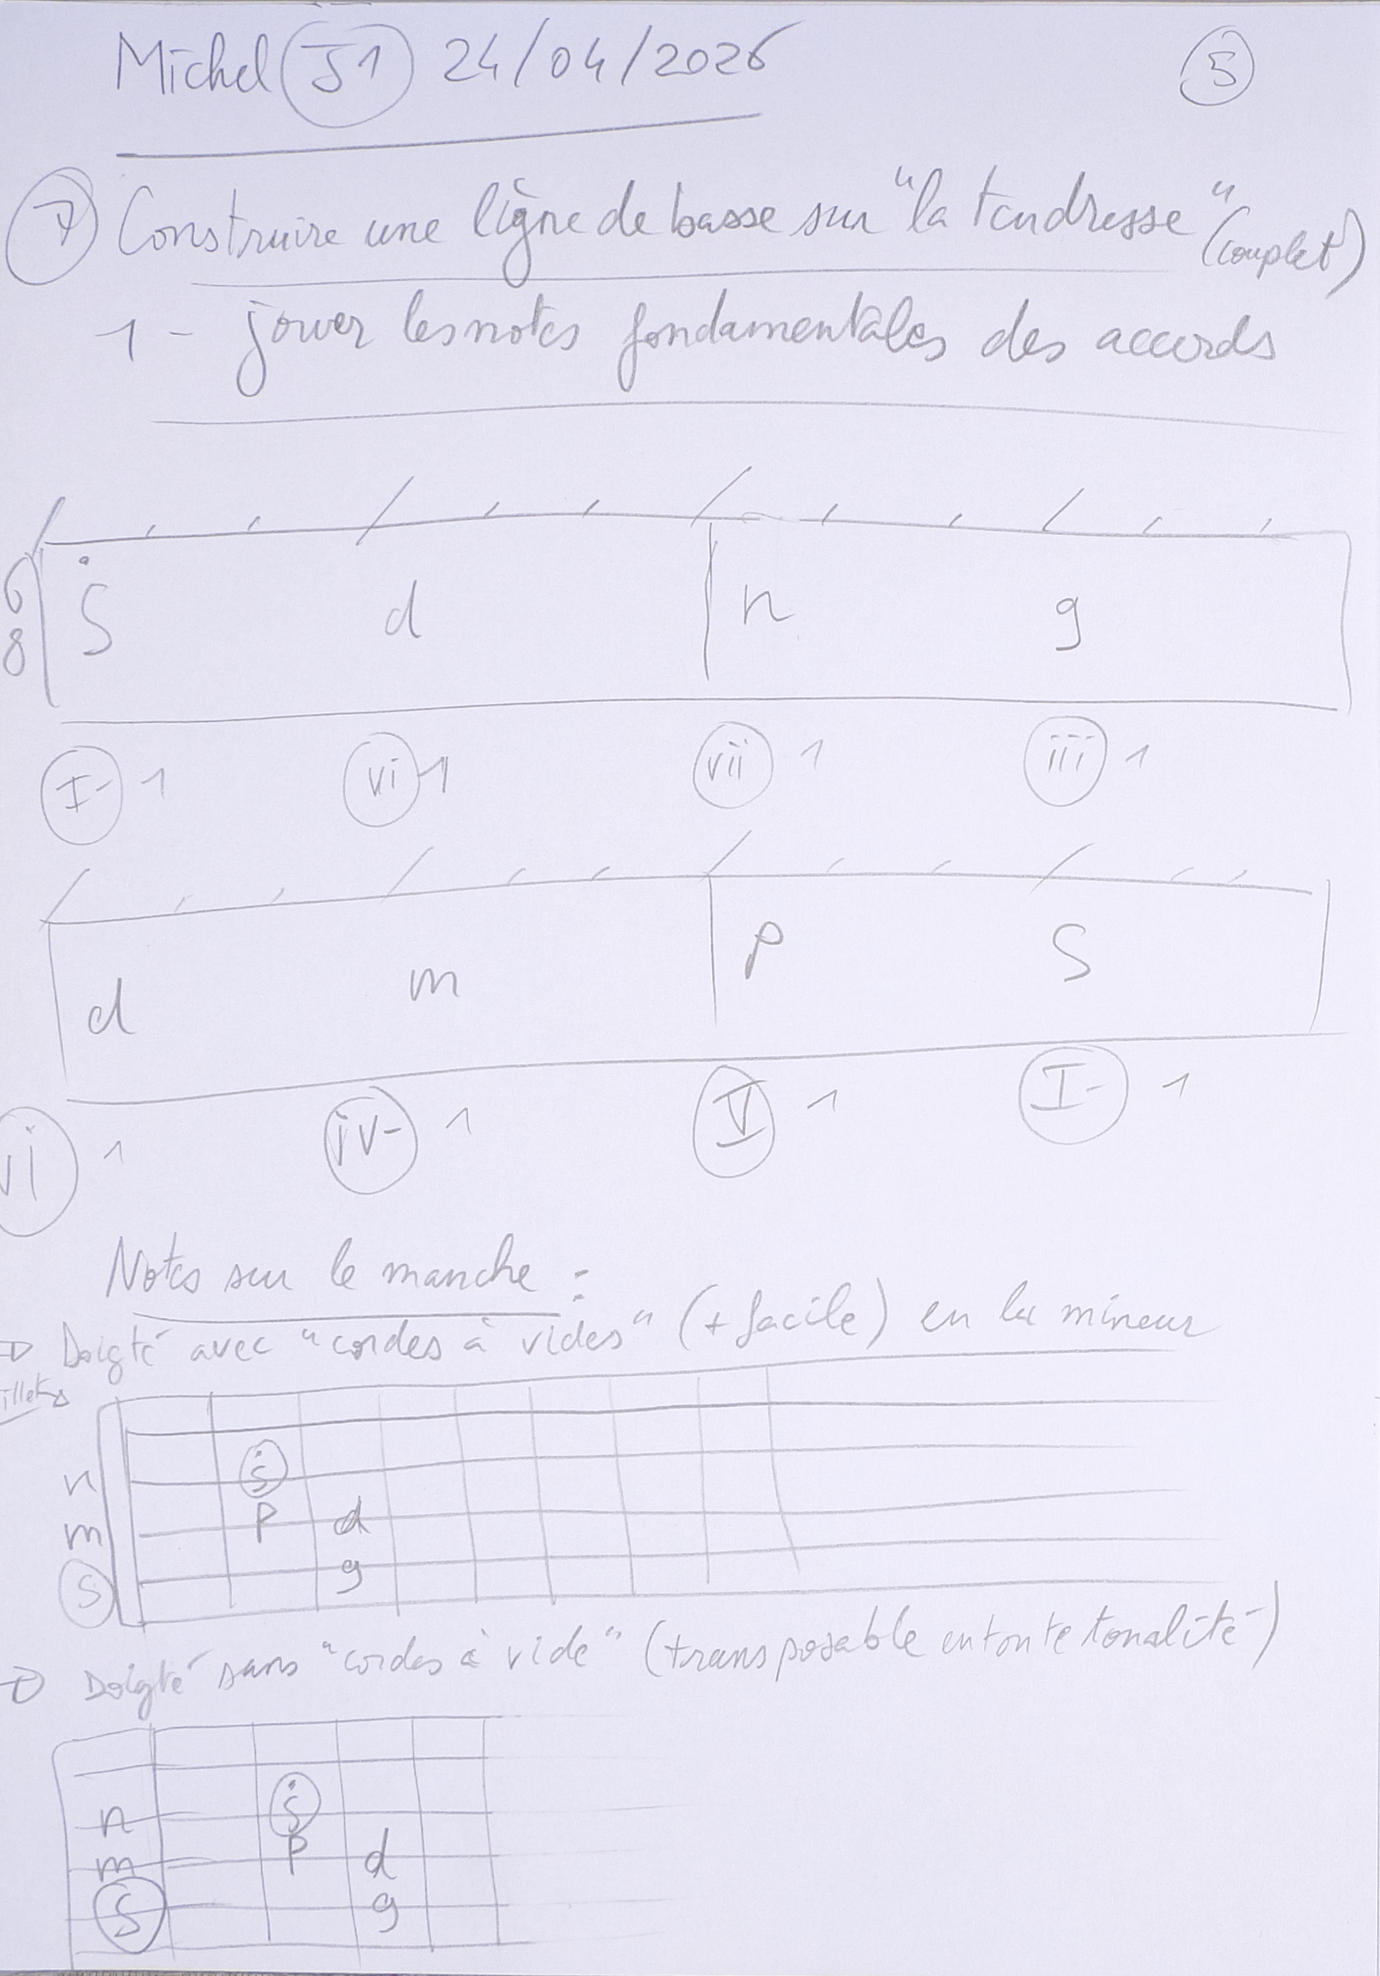 Michel S1 24/04/2026
5
7 Construire une ligne de basse sur "la tendresse" (couplet)
1 - jouer les notes fondamentales des accords
6
8
Ṡ d n g
I- 1 vi 1 vii 1 iii 1
d m P S
vi 1 iv- 1 V 1 I- 1
Notes sur le manche :
Doigté avec "cordes à vides" (+ facile) en la mineur
n ṡ
m P d
S g
Doigté sans "cordes à vide" (transposable en toute tonalité)
n ṡ
m P d
S g